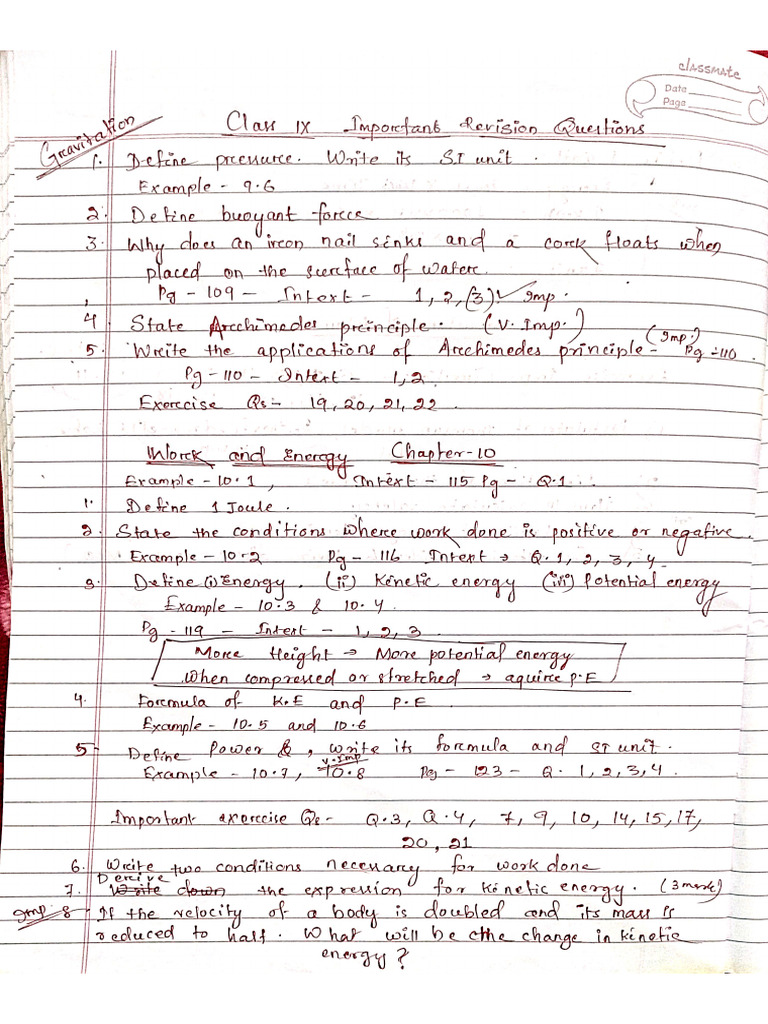 classmate
Date
Page
Gravitation
Class IX Important Revision Questions
1. Define pressure. Write its S.I unit.
Example - 9.6
2. Define buoyant force
3. Why does an iron nail sinks and a cork floats when
placed on the surface of water.
Pg - 109 - Intext - 1, 2, (3) ✓ Imp.
4. State Archimedes principle. (V. Imp.)
5. Write the applications of Archimedes principle - (Imp.) Pg - 110
Pg - 110 - Intext - 1, 2.
Exercise Qs - 19, 20, 21, 22.
Work and Energy Chapter - 10
Example - 10.1, Intext - 115 Pg - Q.1
1. Define 1 Joule.
2. State the conditions where work done is positive or negative.
Example - 10.2 Pg - 116 Intext → Q. 1, 2, 3, 4
3. Define (i) Energy. (ii) Kinetic energy (iii) Potential energy
Example - 10.3 & 10.4.
Pg - 119 - Intext - 1, 2, 3.
More Height → More potential energy
When compressed or stretched → aquire P.E
4. Formula of K.E and P.E
Example - 10.5 and 10.6
5 - Define Power &, write its formula and SI unit.
Example - 10.7, V. Imp 10.8 Pg - 123 - Q. 1, 2, 3, 4.
Important exercise Qs - Q.3, Q.4, 7, 9, 10, 14, 15, 17,
20, 21
6. Write two conditions necessary for work done
Derive
7. Write down the expression for kinetic energy. (3 mark)
Imp. 8 - If the velocity of a body is doubled and its mass is
reduced to half. What will be the change in kinetic
energy?